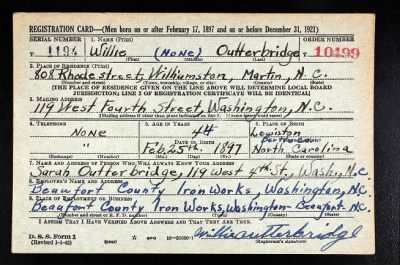 REGISTRATION CARD—(Men born on or after February 17, 1897 and on or before December 31, 1921)
SERIAL NUMBER 1. NAME (Print) ORDER NUMBER
T 1194 Willie (None) Outterbridge T 10499
(First) (Middle) (Last)
2. PLACE OF RESIDENCE (Print)
808 Rhode street, Williamston, Martin, N.C.
(Number and street) (Town, township, village, or city) (County) (State)
[THE PLACE OF RESIDENCE GIVEN ON THE LINE ABOVE WILL DETERMINE LOCAL BOARD
JURISDICTION; LINE 2 OF REGISTRATION CERTIFICATE WILL BE IDENTICAL]
3. MAILING ADDRESS
119 West Fourth Street, Washington, N.C.
(Mailing address if other than place indicated on line 2. If same insert word same)
4. TELEPHONE 5. AGE IN YEARS 6. PLACE OF BIRTH
None 44 Lewiston
DATE OF BIRTH (Town or county)
" Feb. 25th. 1897 North Carolina
(Exchange) (Number) (Mo.) (Day) (Yr.) (State or country)
7. NAME AND ADDRESS OF PERSON WHO WILL ALWAYS KNOW YOUR ADDRESS
Sarah Outterbridge, 119 West 4th St., Wash., N.C.
8. EMPLOYER'S NAME AND ADDRESS
Beaufort County Iron Works, Washington, N.C.
9. PLACE OF EMPLOYMENT OR BUSINESS
Beaufort County Iron Works, Washington-Beaufort-N.C.
(Number and street or R. F. D. number) (Town) (County) (State)
I AFFIRM THAT I HAVE VERIFIED ABOVE ANSWERS AND THAT THEY ARE TRUE.
D. S. S. Form 1
(Revised 1-1-42) (over) GPO 16—21630-1 Willie outterbridge
(Registrant's signature)